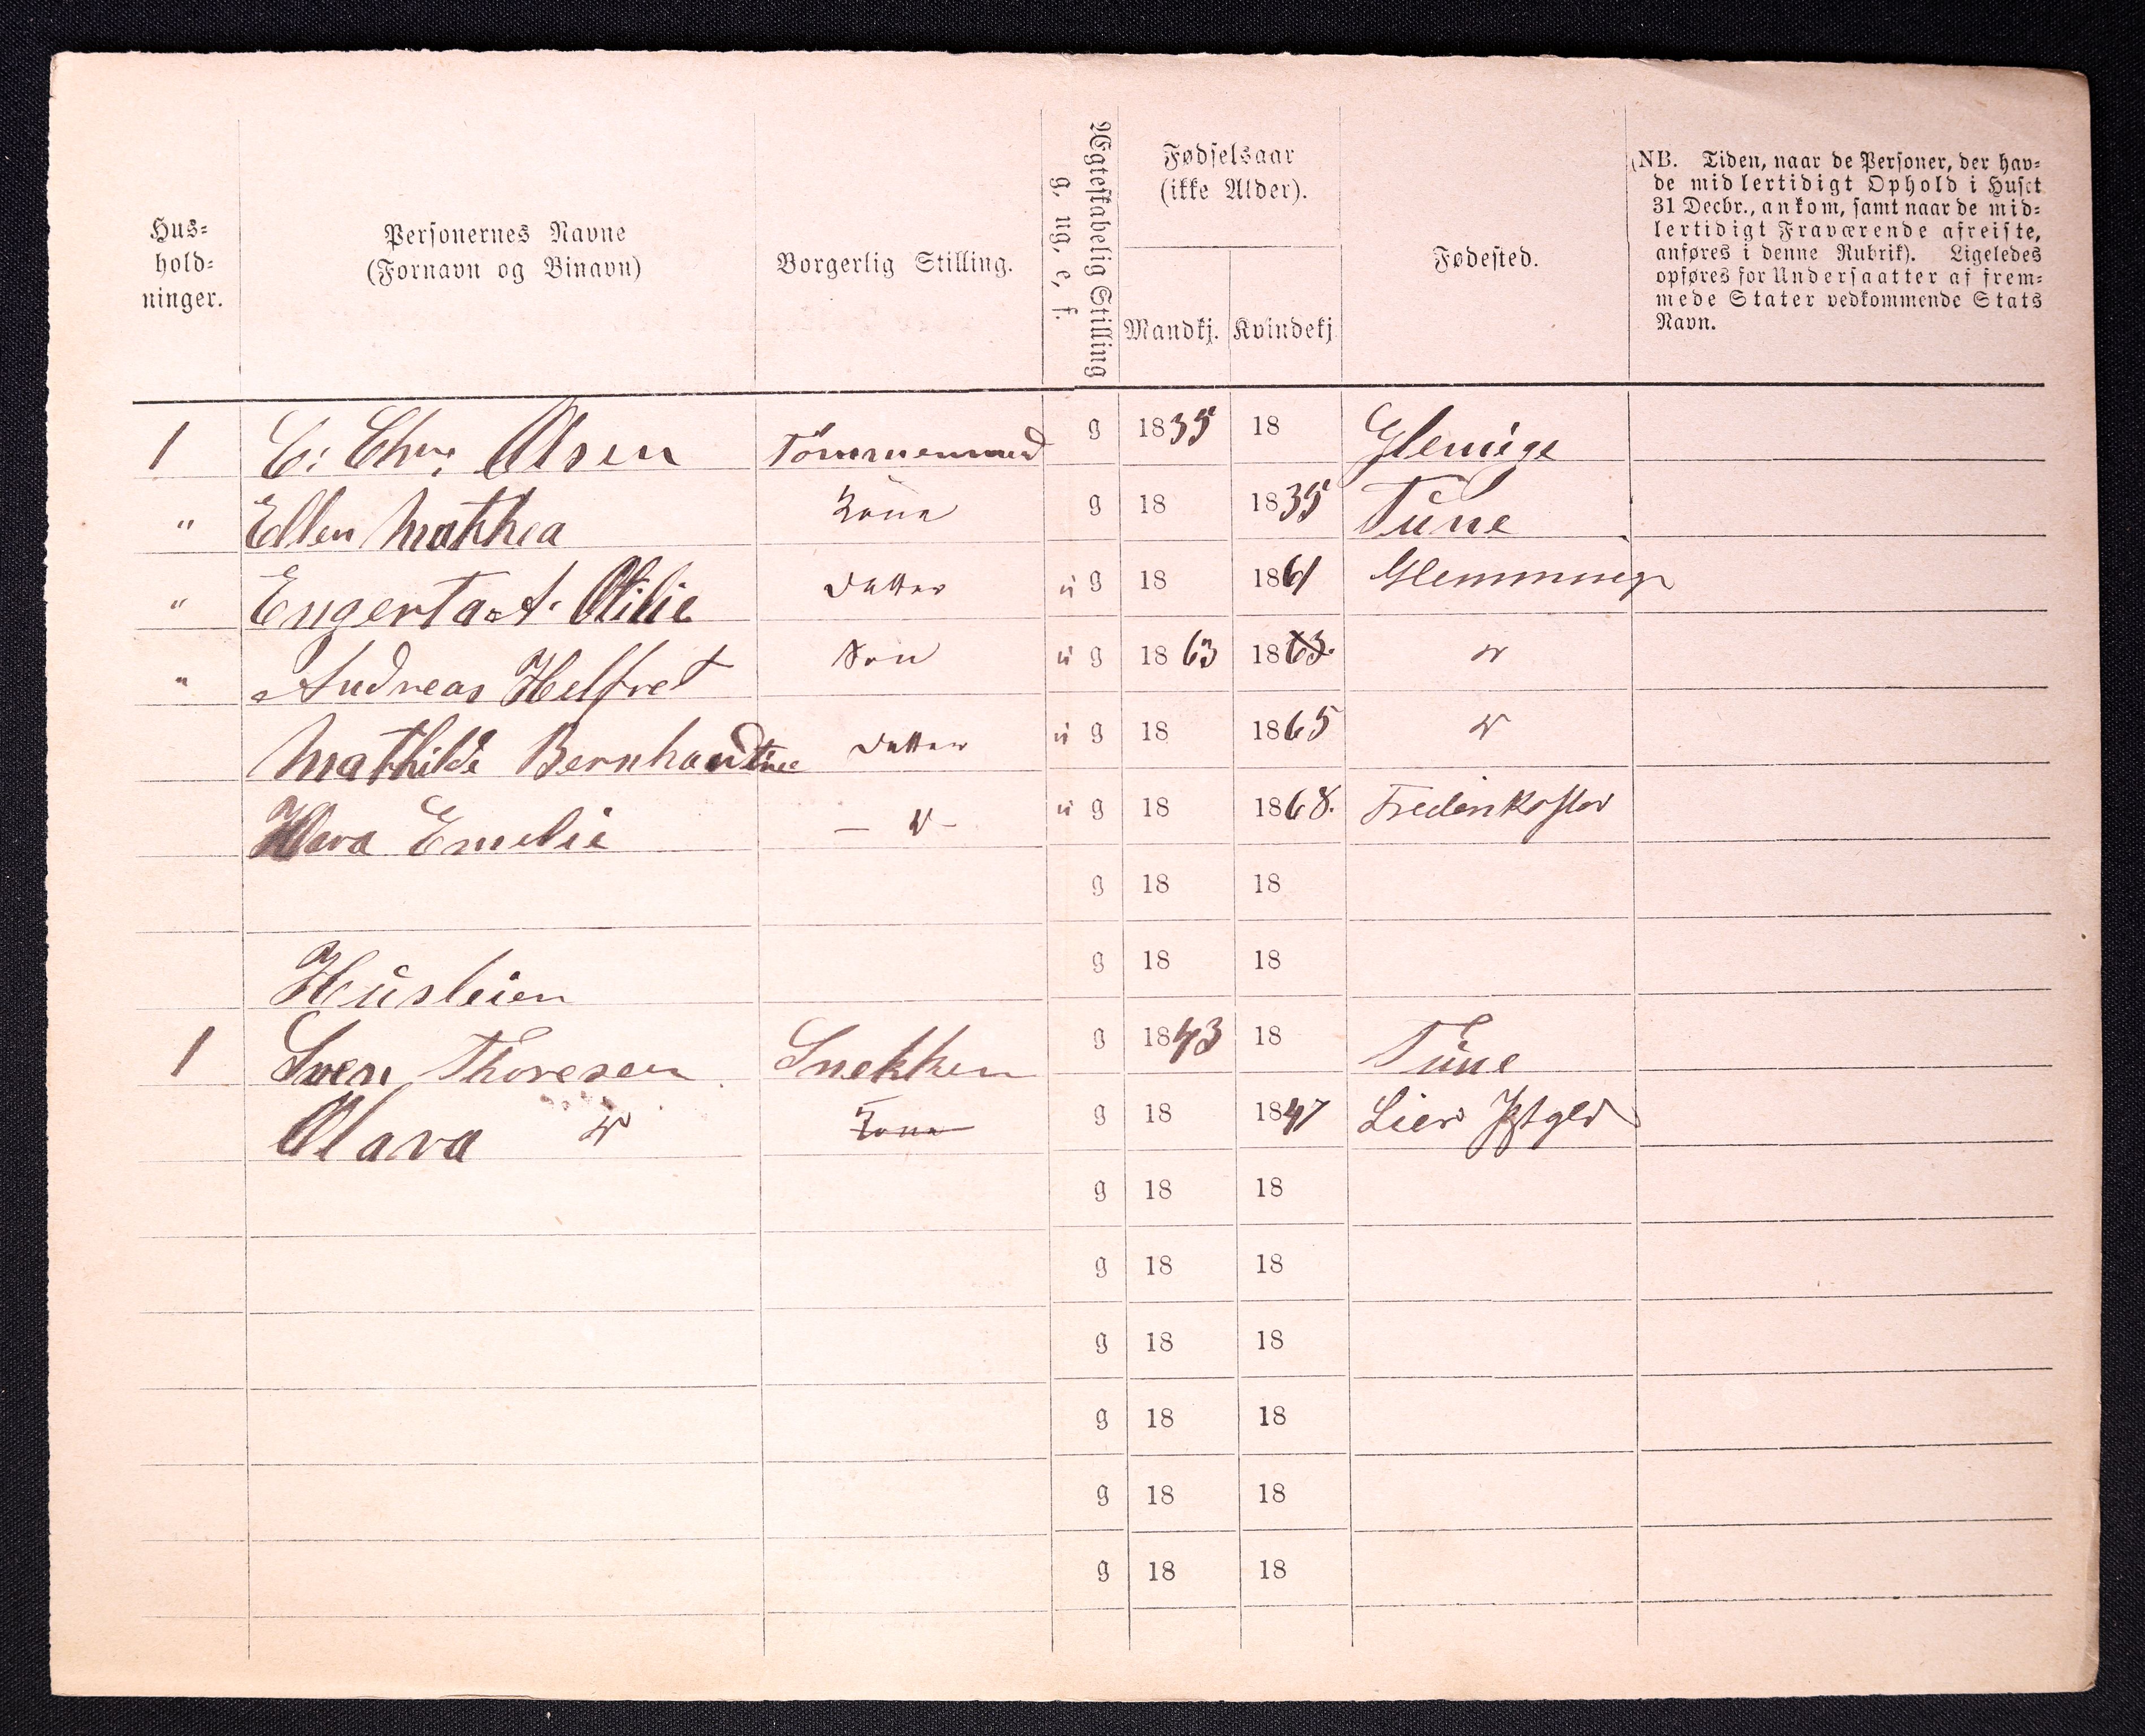 Hus=
hold=
ninger.
Personernes Navne
(Fornavn og Binavn)
Borgerlig Stilling.
Ægteskabelig Stilling
g, ug, e, f.
Fødselsaar
(ikke Alder).
Mandkj. Kvindekj
Fødested.
(NB. Tiden, naar de Personer, der hav=
de midlertidigt Ophold i Huset
31 Decbr., ankom, samt naar de mid=
lertidigt Fraværende afreiste,
anføres i denne Rubrik). Ligeledes
opføres for Undersaatter af frem=
mede Stater vedkommende Stats
Navn.
1 E: Chr: Olsen Tömmermand g 1835 18 Glemige
" Ellen Mathea Kone g 18 1835 Tune
" Engerta A. Otilie Datter u g 18 1861 Glemminge
" Andreas Helfret Søn u g 1863 1863. "
Mathilde Bernhardine Datter u g 18 1865 "
Klara Emelie — " — u g 18 1868. Frederikstad
g 18 18
Husleien g 18 18
1 Sven Thoresen Snekker g 1843 18 Tune
Olava " Kone g 18 1847 Lier
g 18 18
g 18 18
g 18 18
g 18 18
g 18 18
g 18 18